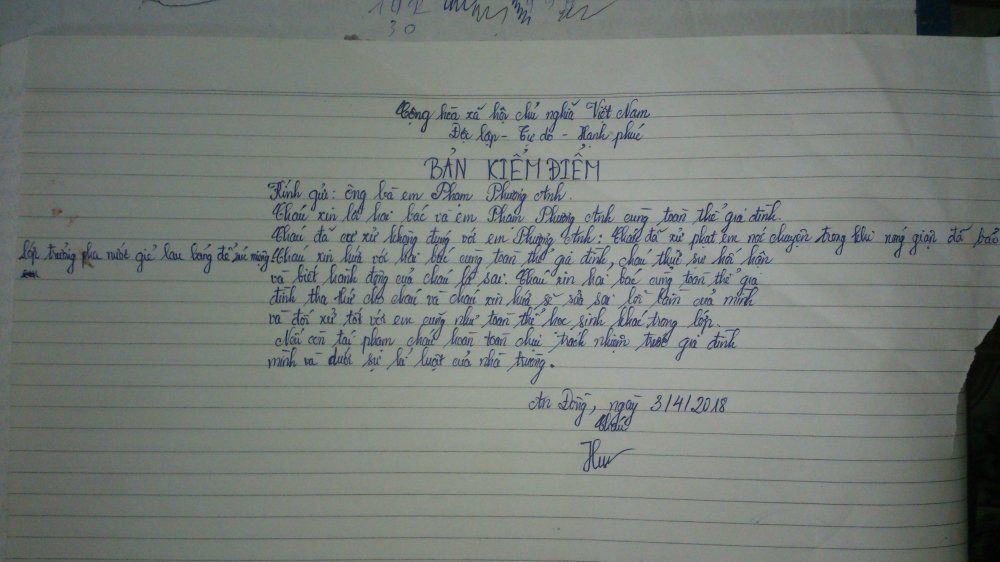 102
30
Cộng hòa xã hội chủ nghĩa Việt Nam
Độc lập - Tự do - Hạnh phúc
BẢN KIỂM ĐIỂM
Kính gửi: ông bà em Phạm Phương Anh.
Cháu xin lỗi hai bác và em Phạm Phương Anh cùng toàn thể gia đình.
Cháu đã cư xử không đúng với em Phương Anh: Cháu đã xử phạt em nói chuyện trong khi nóng giận đã bảo
lớp trưởng pha nước giẻ lau bảng để súc miệng
Cháu xin hứa với hai bác cùng toàn thể gia đình, cháu thực sự hối hận
và biết hành động của cháu là sai. Cháu xin hai bác cùng toàn thể gia
đình tha thứ cho cháu và cháu xin hứa sẽ sửa sai lỗi lầm của mình
và đối xử tốt với em cũng như toàn thể học sinh khác trong lớp.
Nếu còn tái phạm cháu hoàn toàn chịu trách nhiệm trước gia đình
mình và dưới sự kỉ luật của nhà trường.
An Đồng, ngày 3/4/2018
Cháu